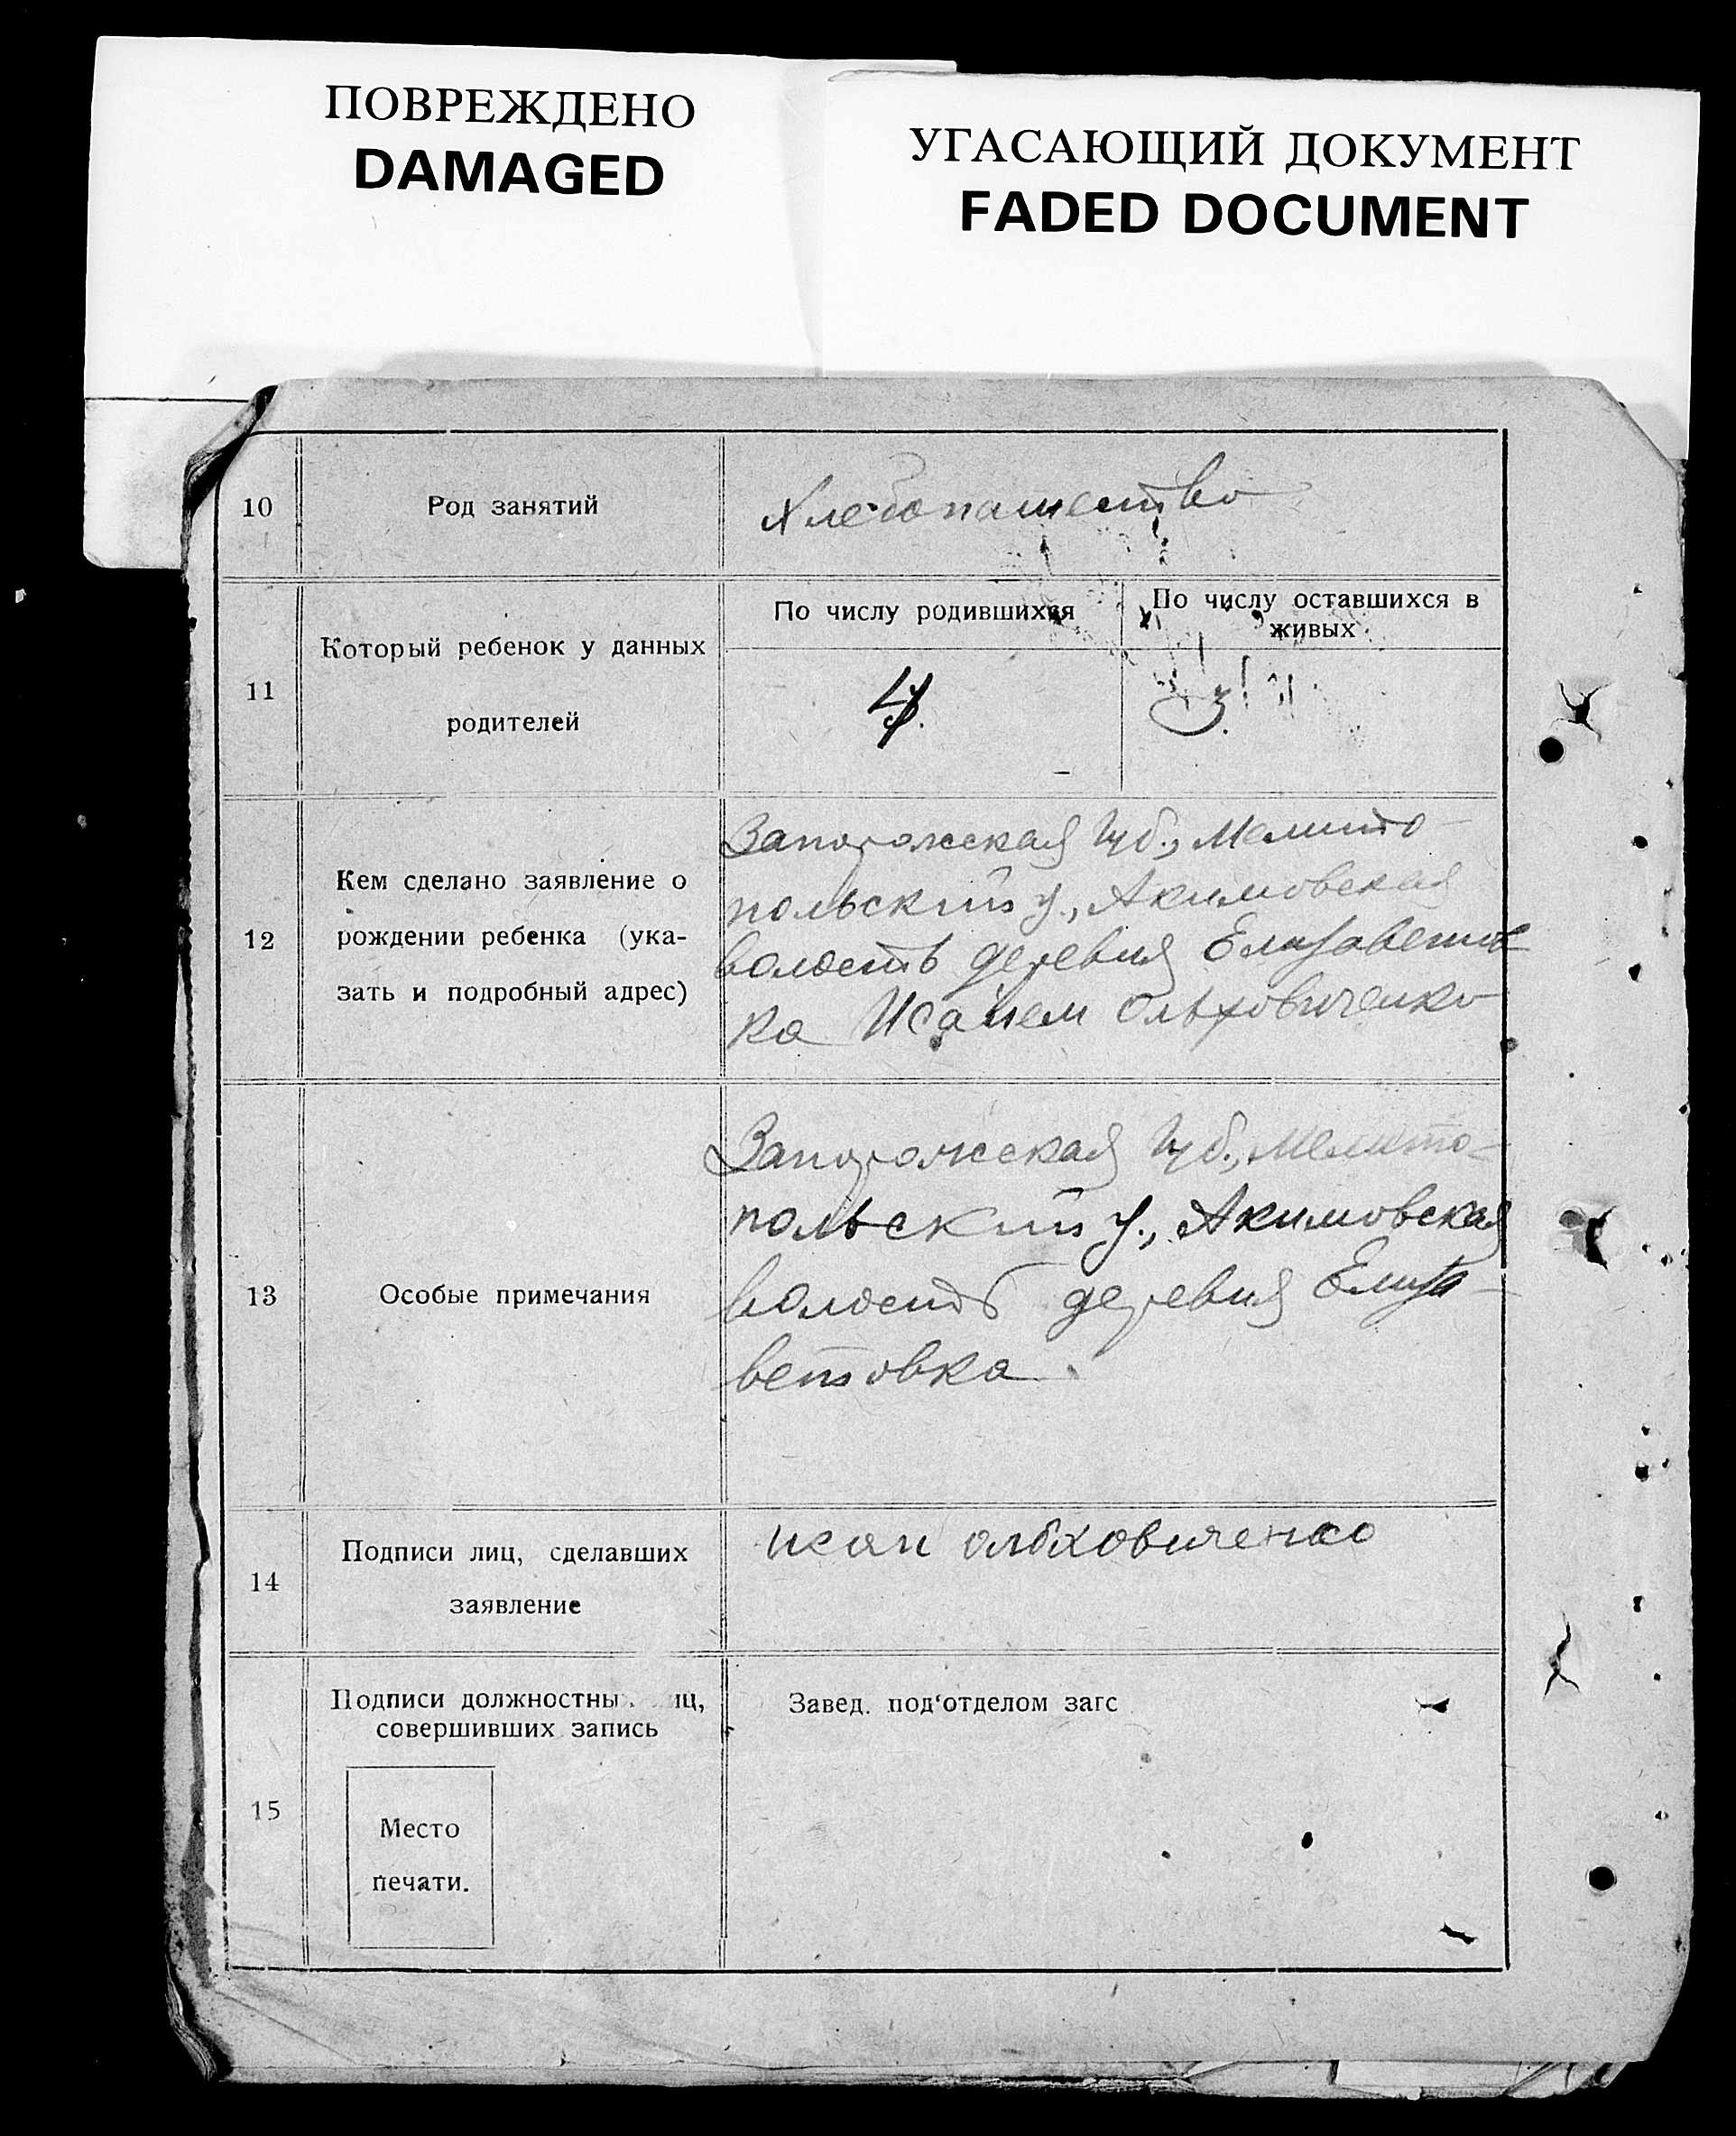 ПОВРЕЖДЕНО
DAMAGED
УГАСАЮЩИЙ ДОКУМЕНТ
FADED DOCUMENT
10
Род занятий
Хлебопашество
11
Который ребенок у данных
родителей
По числу родившихся
По числу оставшихся в
живых
4.
3.
12
Кем сделано заявление о
рождении ребенка (ука-
зать и подробный адрес)
Запорожская губ., Мелито-
польский у., Акимовская
волость деревня Елизаветов
ка Исаием Ольховиченко
13
Особые примечания
Запорожская губ., Мелито-
польский у., Акимовская
волость деревня Елиза-
ветовка
14
Подписи лиц, сделавших
заявление
Исаи Ольховиченко
15
Подписи должностны иц,
совершивших запись
Место
печати.
Завед. под‘отделом загс